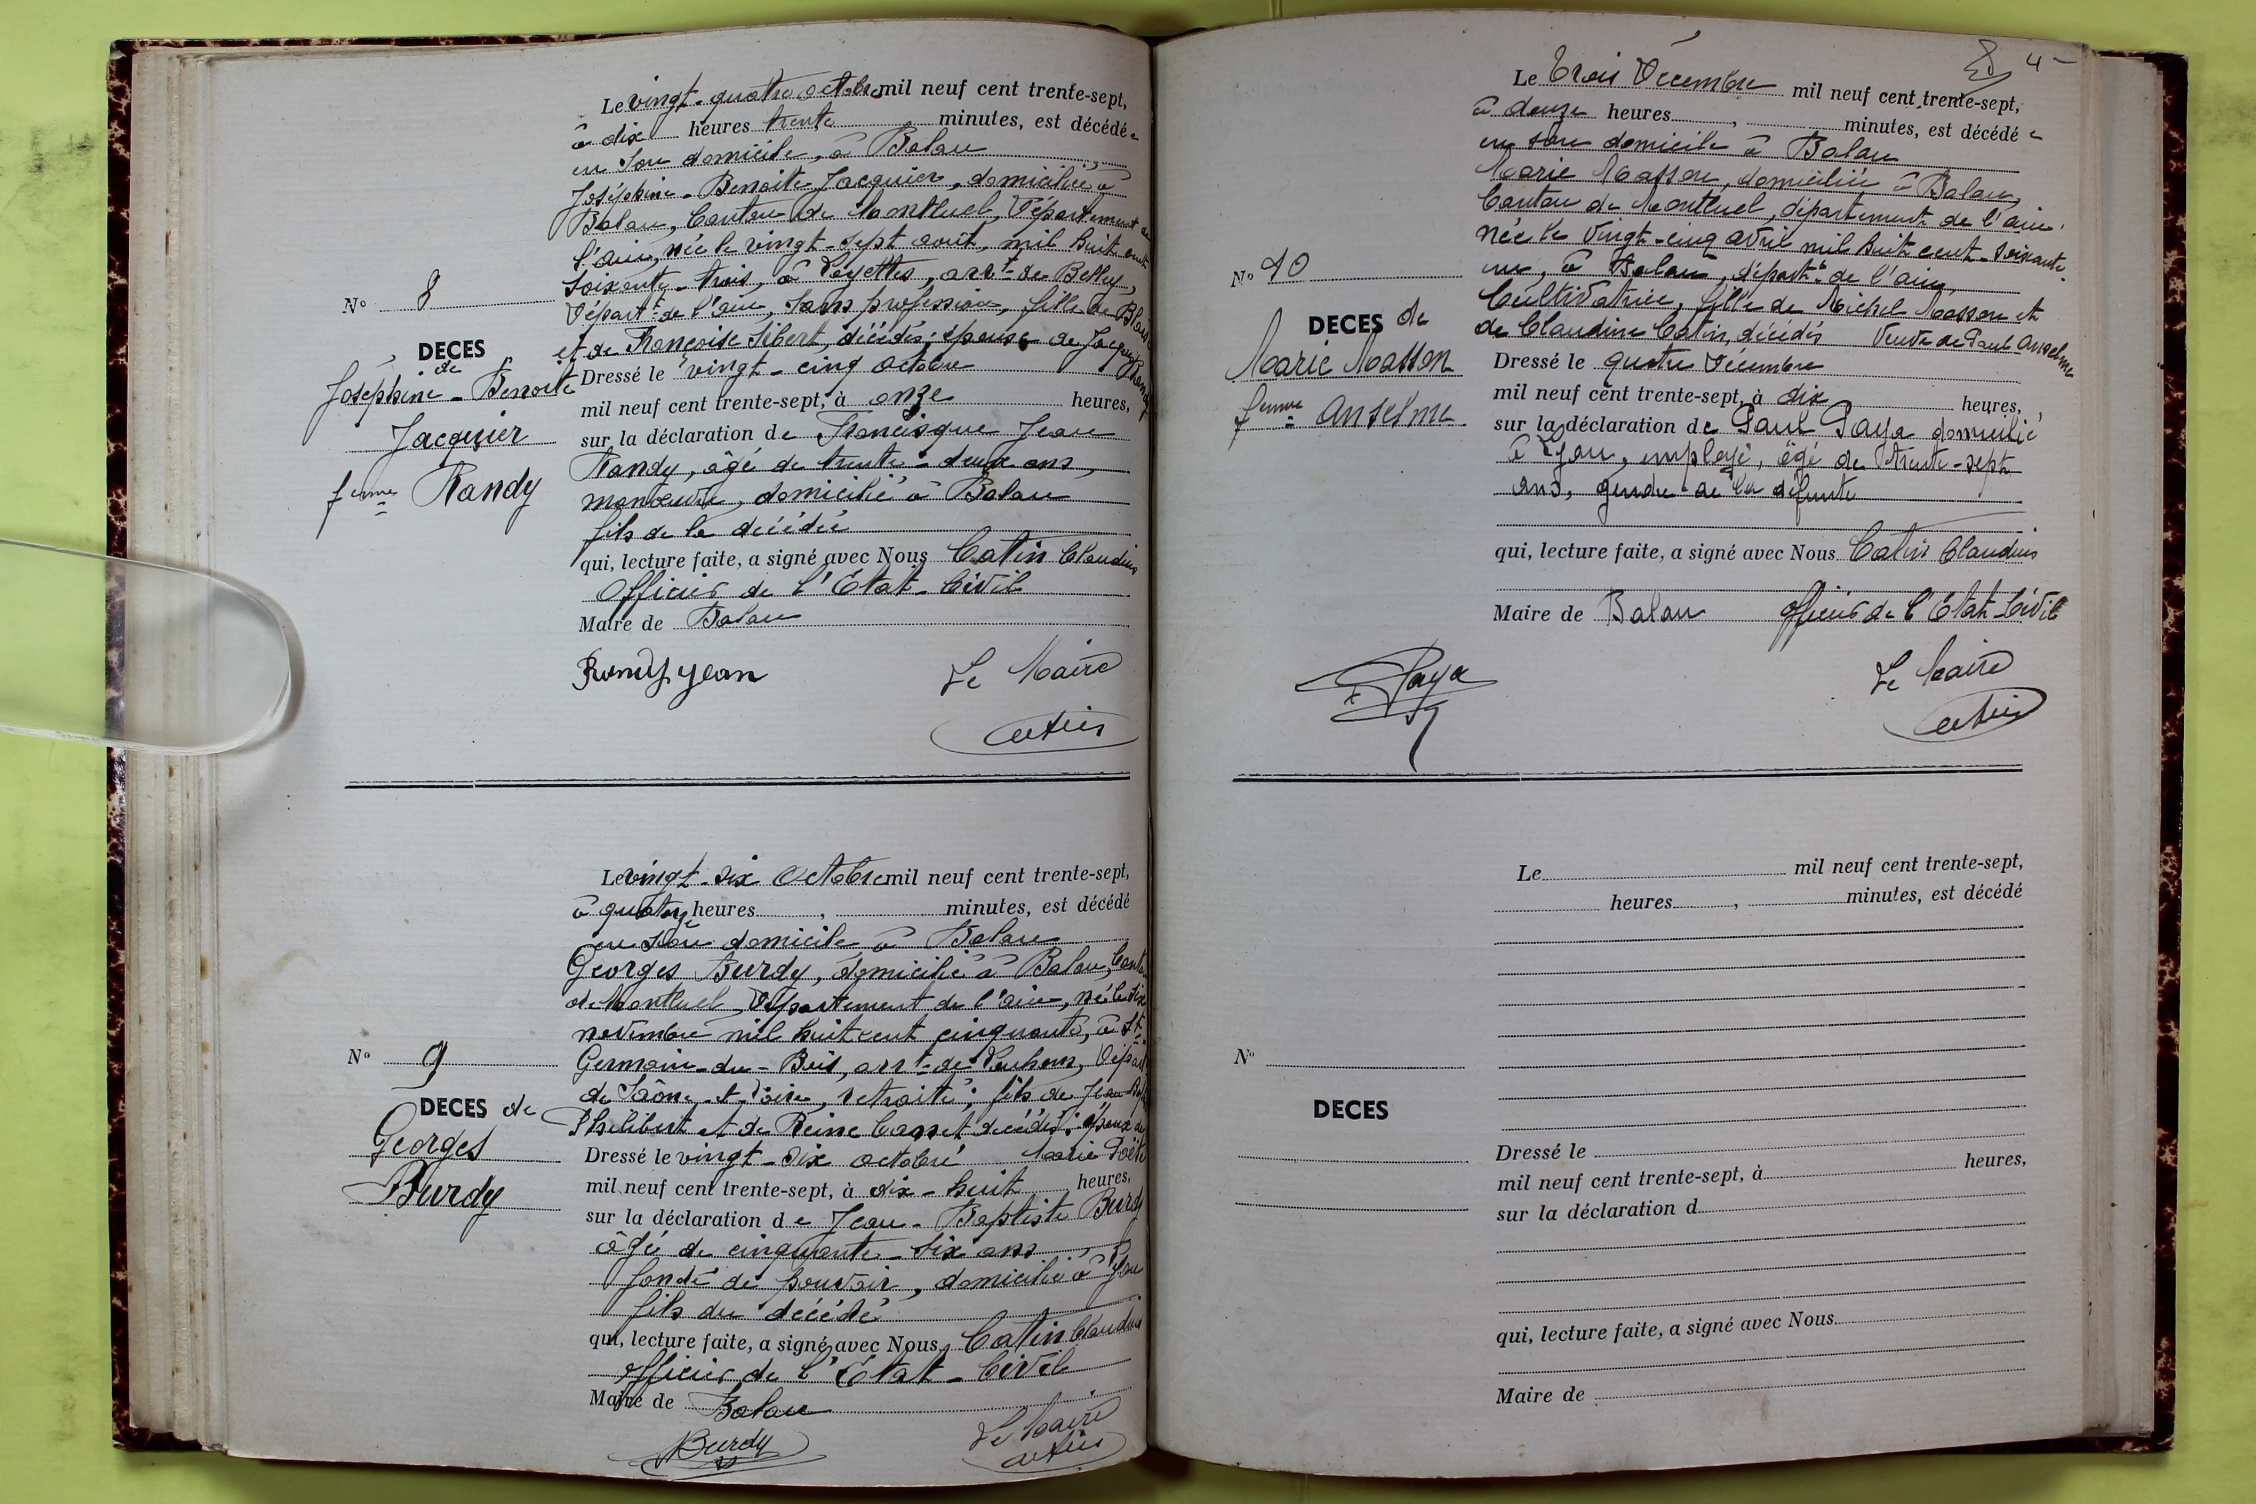 Le vingt-quatre octobre mil neuf cent trente-sept,
à dix heures trente minutes, est décédée
en son domicile, à Balan
Joséphine-Benoite Jacquier, domiciliée à
Balan, Canton de Montluel, Département de
l'ain, née le vingt-sept août, mil huit cent
soixante-trois, à Loyettes, arrt de Belley,
Départt de l'ain, sans profession, fille de Blaise
et de Françoise Sibert, décédés; épouse de Jacques Randy
N° 8
DECES
de
Joséphine-Benoite
Jacquier
femme Randy
Dressé le vingt-cinq octobre
mil neuf cent trente-sept, à onze heures,
sur la déclaration de Francisque Jean
Randy, âgé de trente-deux ans,
manœuvre, domicilié à Balan
fils de la décédée
qui, lecture faite, a signé avec Nous Catin Claudius
Officier de l'Etat-Civil
Maire de Balan
Randy Jean
Le Maire
Catin
Le vingt-six octobre mil neuf cent trente-sept,
à quatorze heures , minutes, est décédé
en son domicile à Balan
Georges Burdy, domicilié à Balan, Canton
de Montluel, Département de l'ain, né le six
novembre mil huit cent cinquante, à St
Germain-du-Bois, arrt de Louhans, Départ
de Saône-et-Loire, retraité; fils de Jean
Philibert et de Reine Cannet décédés; époux de
N° 9
DECES de
Georges
Burdy
Dressé le vingt-six octobre Marie
mil neuf cent trente-sept, à dix-huit heures,
sur la déclaration de Jean-Baptiste Burdy
âgé de cinquante-six ans
fondé de pouvoir, domicilié à Lyon
fils du décédé
qui, lecture faite, a signé avec Nous Catin Claudius
officier de l'Etat-Civil
Maire de Balan
Burdy
Le Maire
Catin
4
Le trois Décembre mil neuf cent trente-sept,
à douze heures , minutes, est décédée
en son domicile à Balan
Marie Masson, domiciliée à Balan,
Canton de Montluel, département de l'ain,
née le vingt-cinq avril mil huit cent-soixante-
un, à Balan, départt de l'ain,
Cultivatrice, fille de Michel Masson et
de Claudine Catin, décédés Veuve de Paul Anselme
N° 10
DECES de
Marie Masson
femme Anselme
Dressé le quatre Décembre
mil neuf cent trente-sept, à dix heures,
sur la déclaration de Paul Paya domicilié
à Lyon, employé, âgé de trente-sept
ans, gendre de la défunte
qui, lecture faite, a signé avec Nous Catin Claudius
Maire de Balan officier de l'Etat-Civil
Paya
Le Maire
Catin
Le mil neuf cent trente-sept,
heures , minutes, est décédé
N°
DECES
Dressé le
mil neuf cent trente-sept, à heures,
sur la déclaration d
qui, lecture faite, a signé avec Nous
Maire de